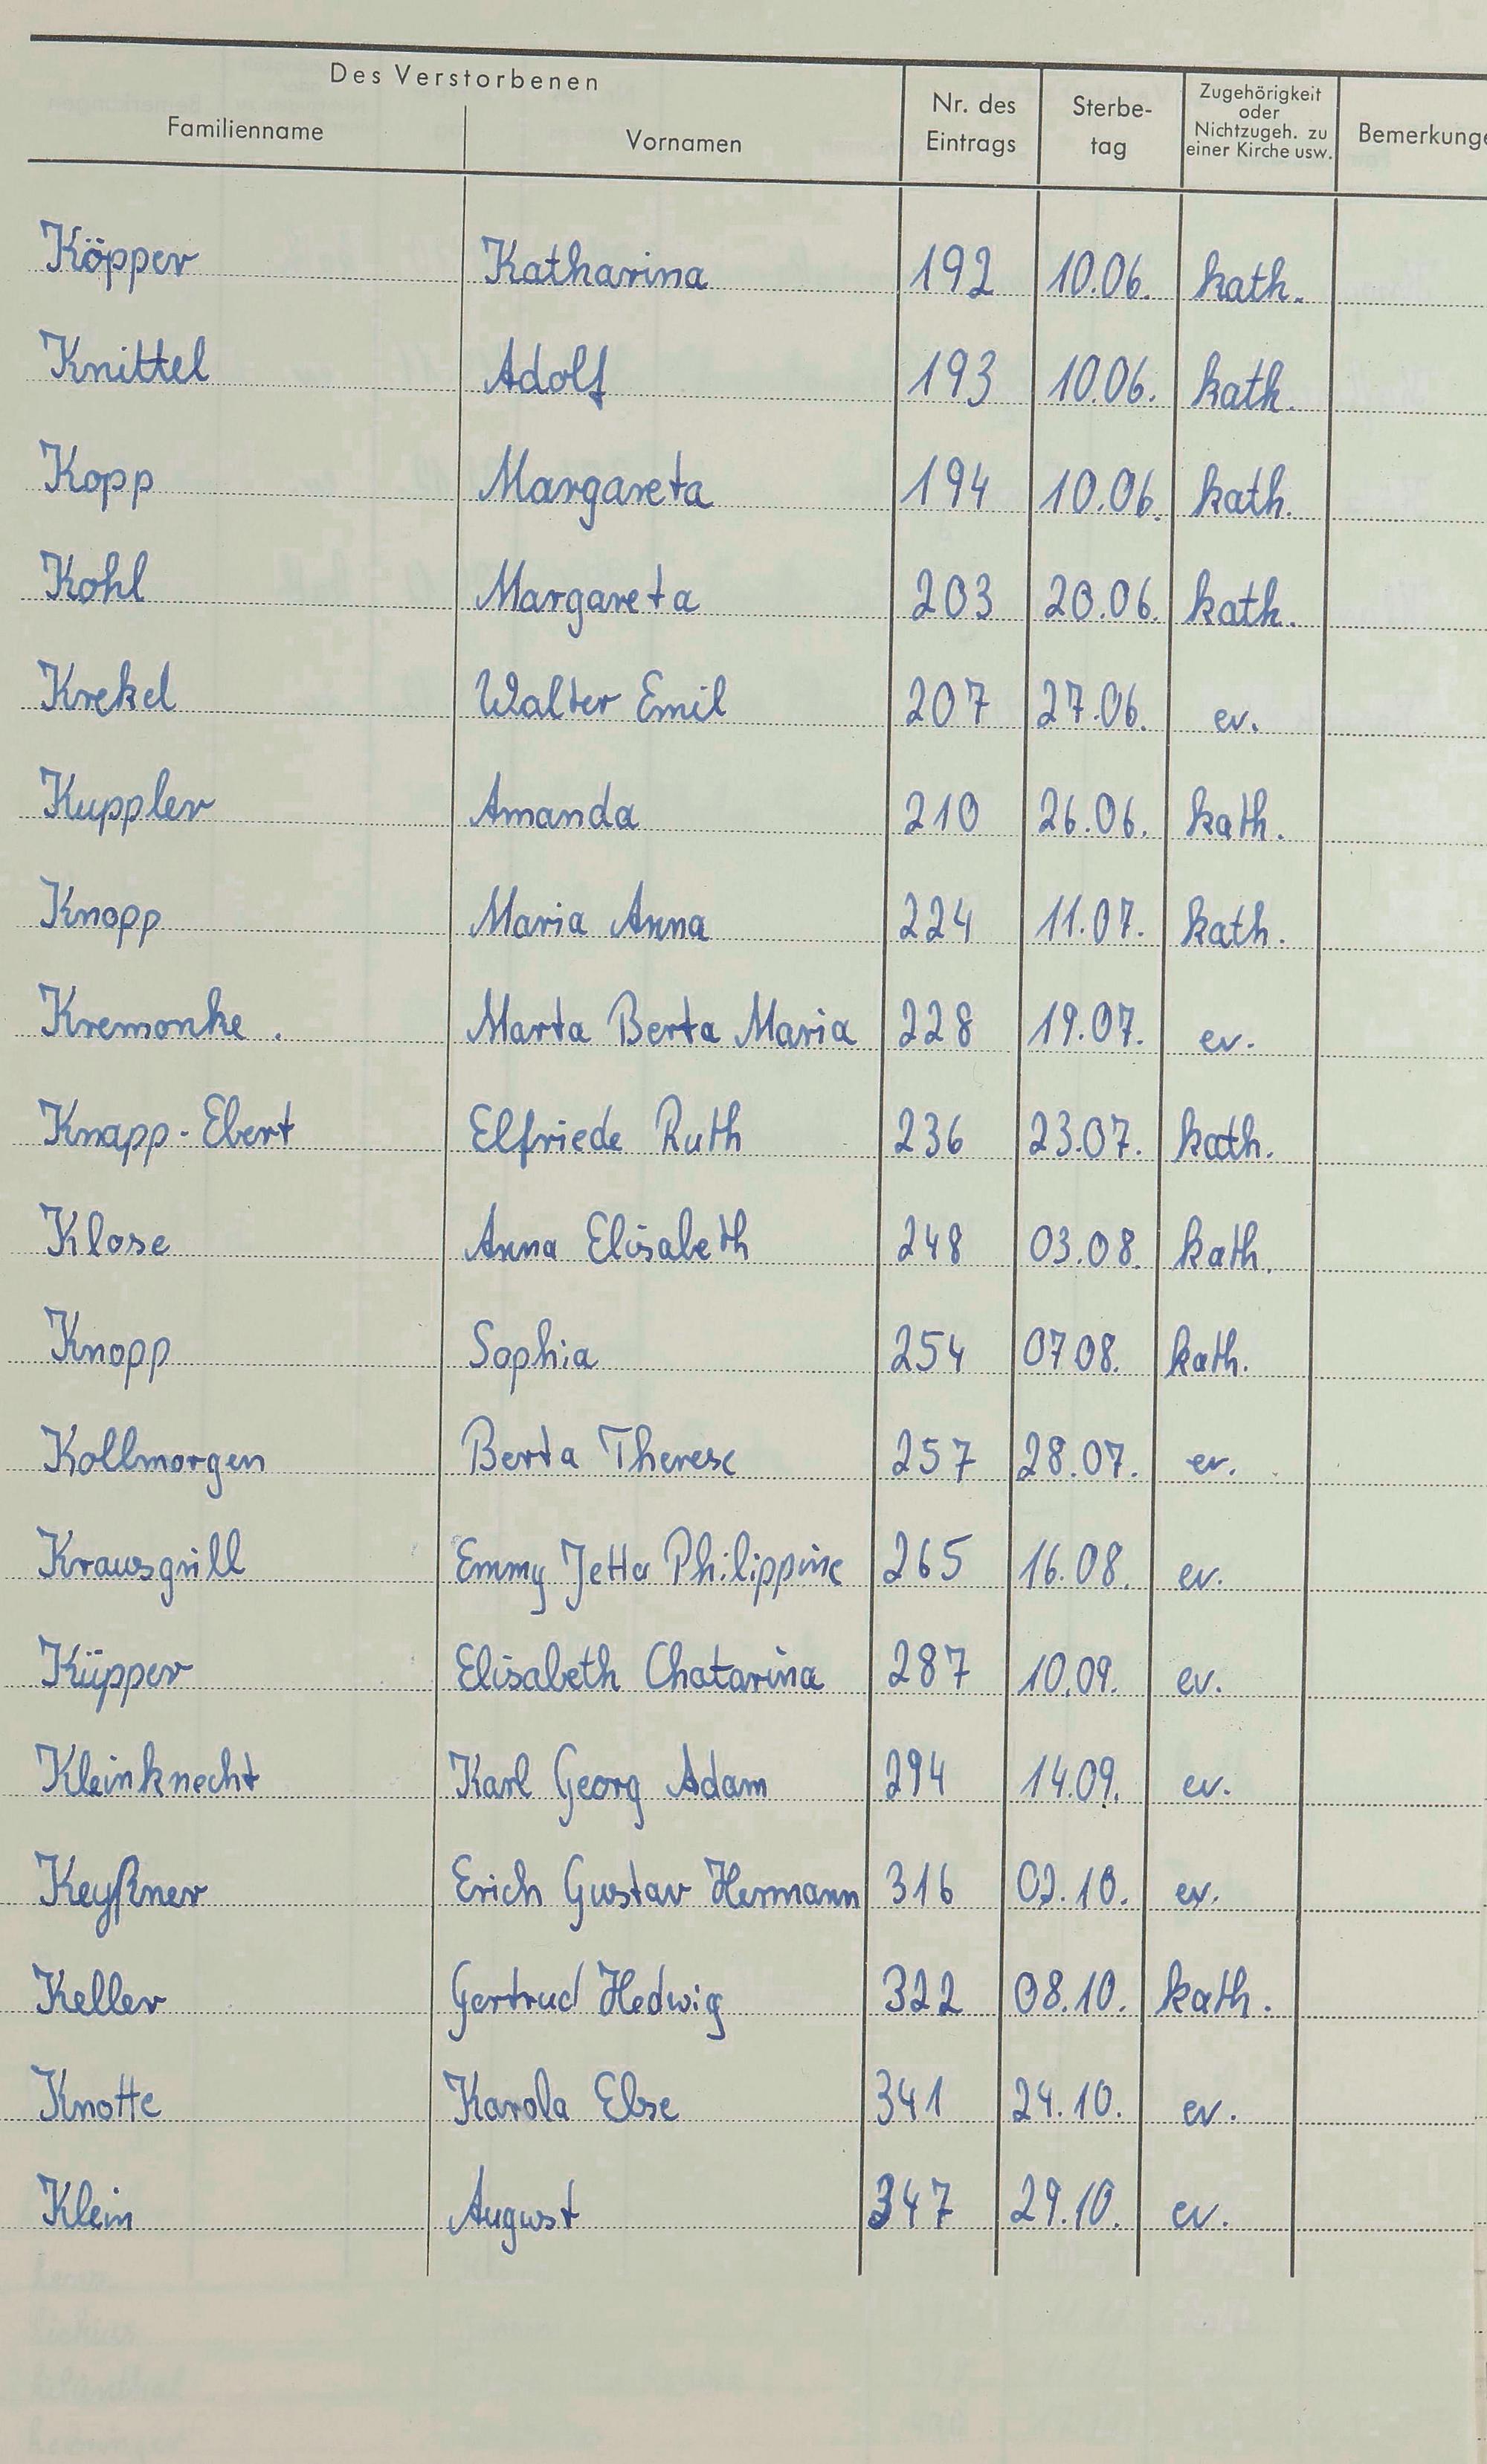 Des Verstorbenen
Familienname Vornamen Nr. des Eintrags Sterbe-tag Zugehörigkeit oder Nichtzugeh. zu einer Kirche usw. Bemerkunge
Köpper Katharina 192 10.06. kath.
Knittel Adolf 193 10.06. kath.
Kopp Margareta 194 10.06. kath.
Kohl Margareta 203 20.06. kath.
Krekel Walter Emil 207 27.06. ev.
Kuppler Amanda 210 26.06. kath.
Knopp Maria Anna 224 11.07. kath.
Kremonke. Marta Berta Maria 228 19.07. ev.
Knapp-Ebert Elfriede Ruth 236 23.07. kath.
Klose Anna Elisabeth 248 03.08. kath.
Knopp Sophia 254 07 08. kath.
Kollmorgen Berta Therese 257 28.07. ev.
Krausgrill Emmy Jetta Philippine 265 16.08. ev.
Küpper Elisabeth Chatarina 287 10.09. ev.
Kleinknecht Karl Georg Adam 294 14.09. ev.
Keyßner Erich Gustav Hermann 316 02.10. ev.
Keller Gertrud Hedwig 322 08.10. kath.
Knotte Karola Else 341 24.10. ev.
Klein August 347 29.10. ev.